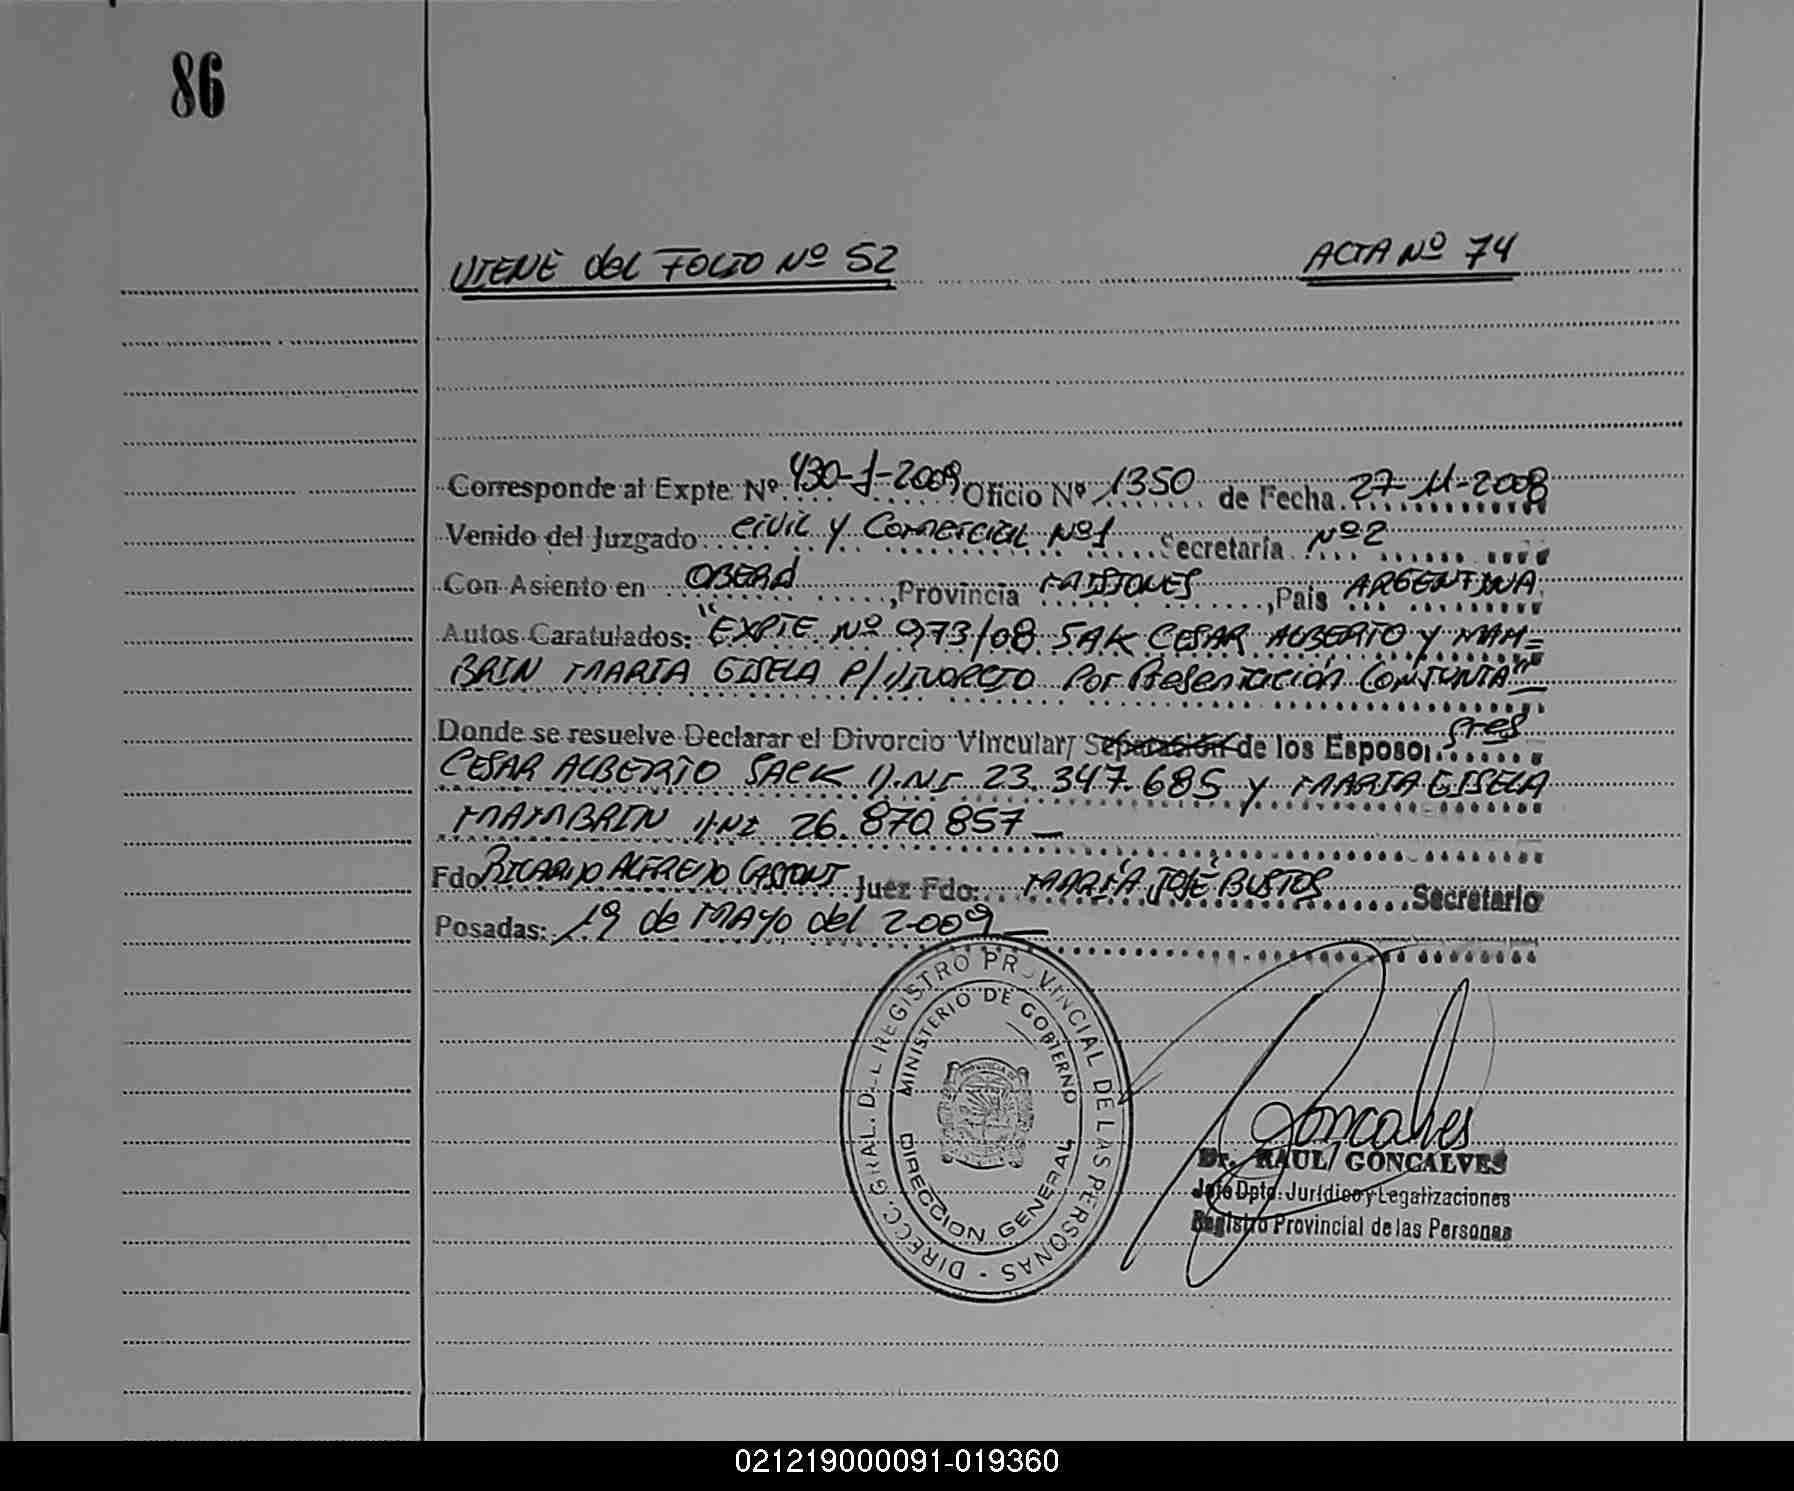 86
VIENE del FOLIO Nº 52 ACTA Nº 74
Corresponde al Expte. Nº 430-J-2009 Oficio Nº 1350 de Fecha 27-11-2008
Venido del Juzgado Civil y Comercial Nº1 Secretaría Nº2
Con Asiento en OBERÁ, Provincia MISIONES, País ARGENTINA
Autos Caratulados: "EXPTE. Nº 973/08 SAK CESAR ALBERTO y MAM=
BRIN MARIA GISELA P/DIVORCIO Por Presentación CONJUNTA"
Donde se resuelve Declarar el Divorcio Vincular/ Separación de los Esposo, Sres
CESAR ALBERTO SACK D.NI 23.347.685 y MARIA GISELA
MAMBRIN D.NI 26.870.857
Fdo RICARDO ALFREDO CASSONI Juez Fdo: MARÍA JOSÉ BUSTOS Secretario
Posadas: 19 de MAYO del 2009
DIRECC. GRAL. DEL REGISTRO PROVINCIAL DE LAS PERSONAS
MINISTERIO DE GOBIERNO
DIRECCION GENERAL
Goncalves
Dr. RAUL GONCALVES
Jefe Dpto. Jurídico y Legalizaciones
Registro Provincial de las Personas
021219000091-019360